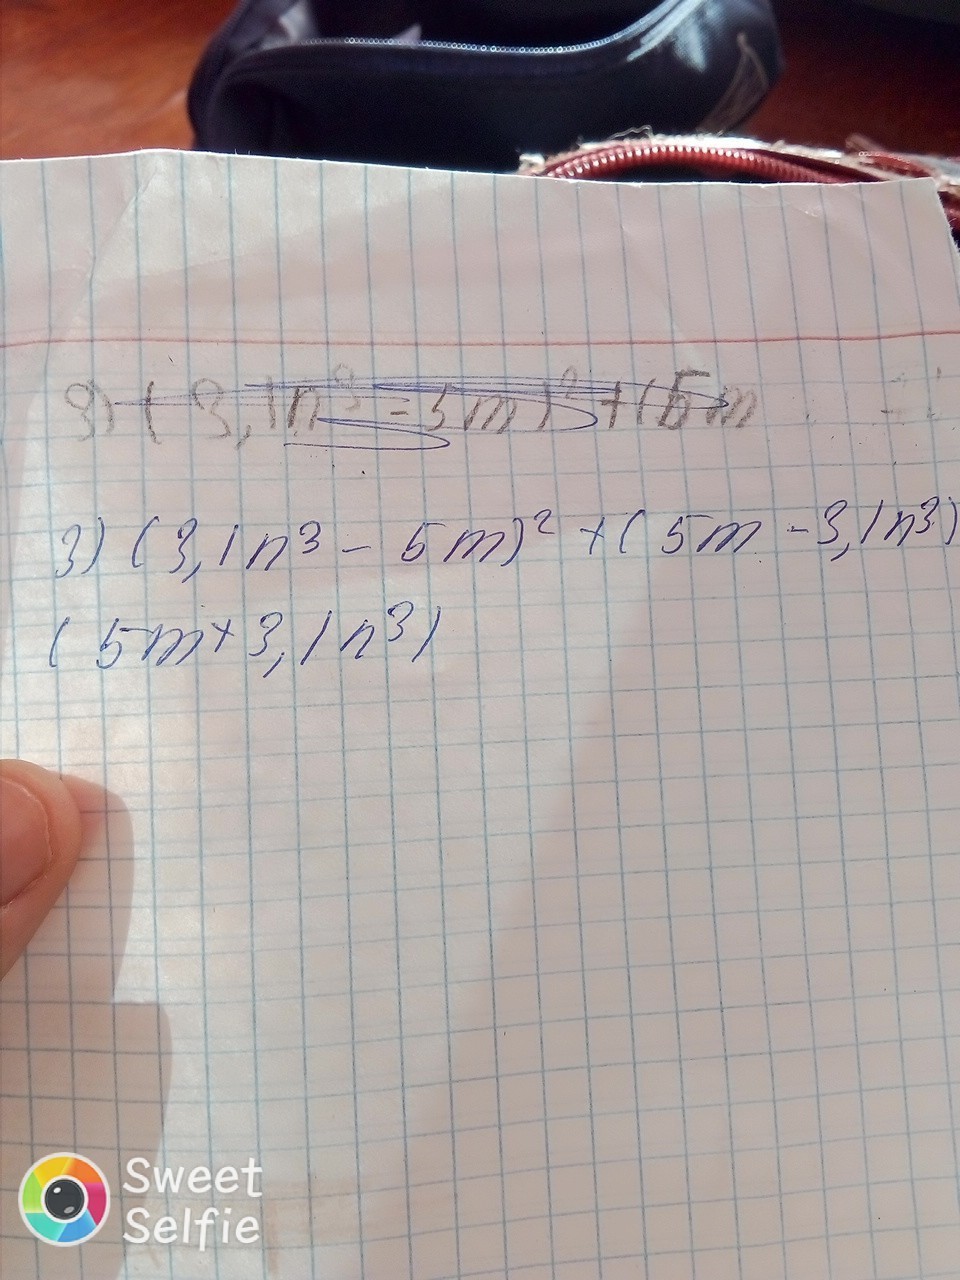 3) (3,1n³ - 5m)² + (5m
3) (3,1n³ - 5m)² + (5m - 3,1n³)
(5m + 3,1n³)
Sweet
Selfie